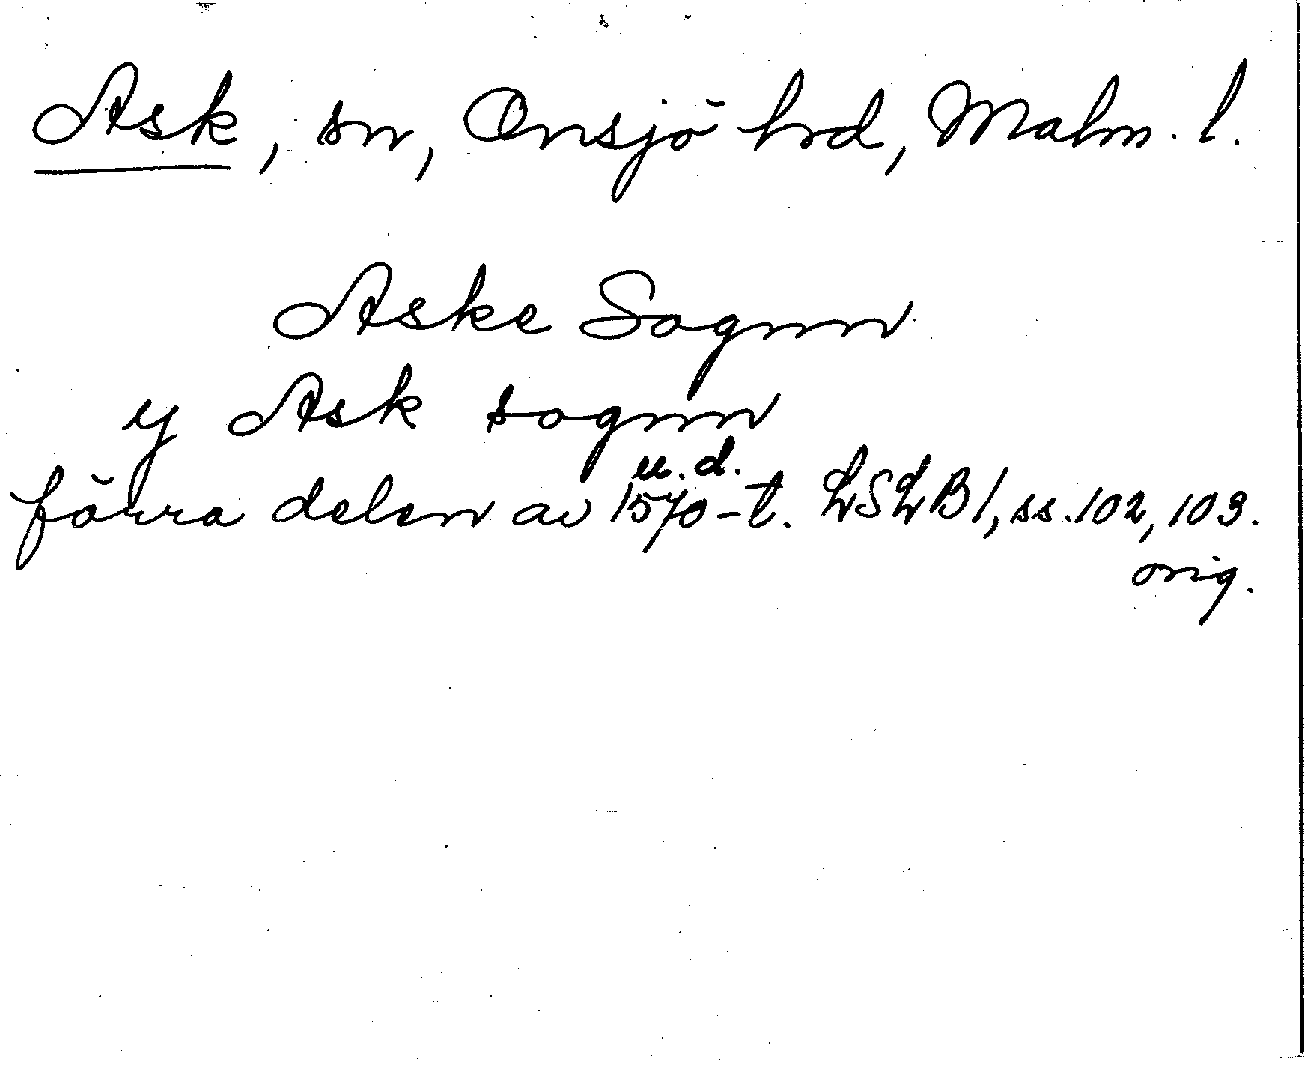 Ask, sn, Onsjö hrd, Malm. l.
Aske Sognn
y Ask sognn
u. d.
förra delen av 1570-t. LSLB1, ss. 102, 103.
orig.